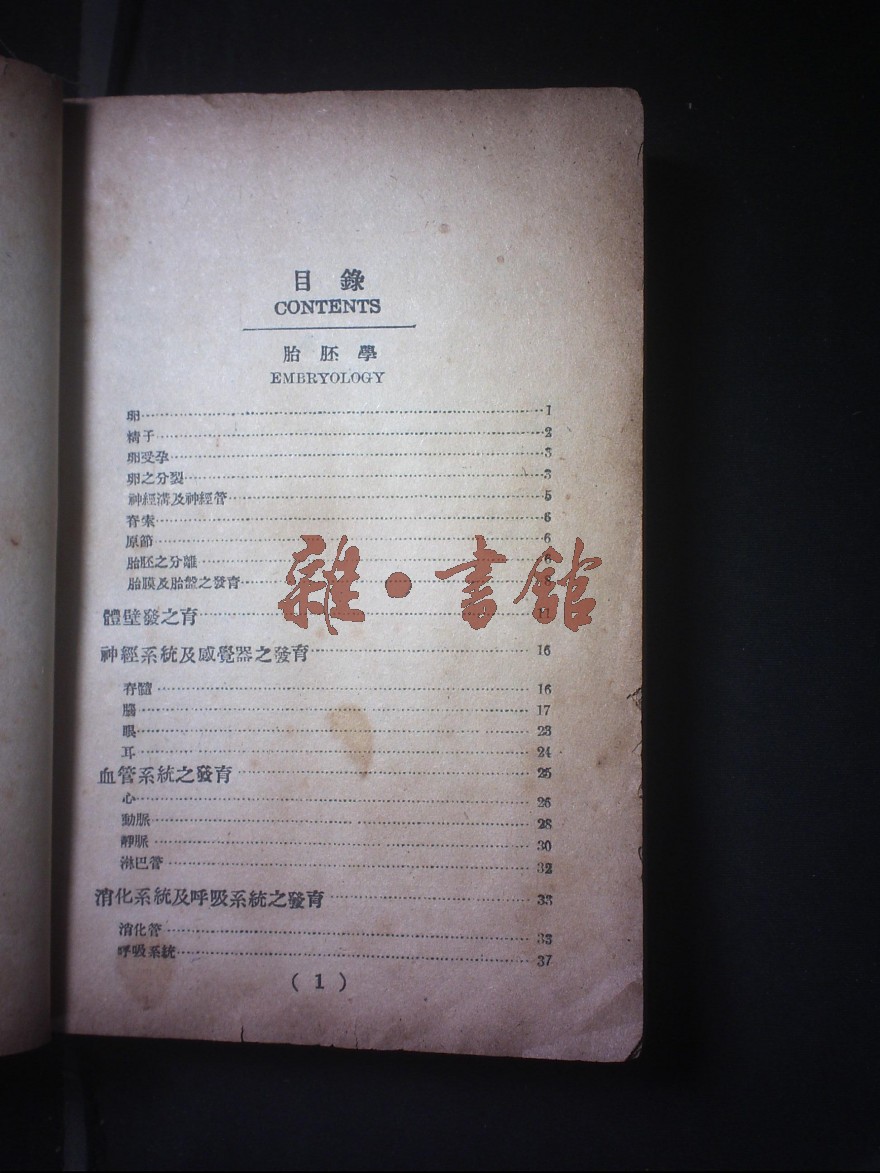 目錄
CONTENTS
胎胚學
EMBRYOLOGY
卵 1
精子 2
卵受孕 3
卵之分裂 3
神經溝及神經管 5
脊索 6
原節 6
胎胚之分離 6
胎膜及胎盤之發育 8
雜·書館
體壁發之育
神經系統及感覺器之發育 16
脊髓 16
腦 17
眼 23
耳 24
血管系統之發育 25
心 26
動脈 28
靜脈 30
淋巴管 32
消化系統及呼吸系統之發育 33
消化管 33
呼吸系統 37
( 1 )